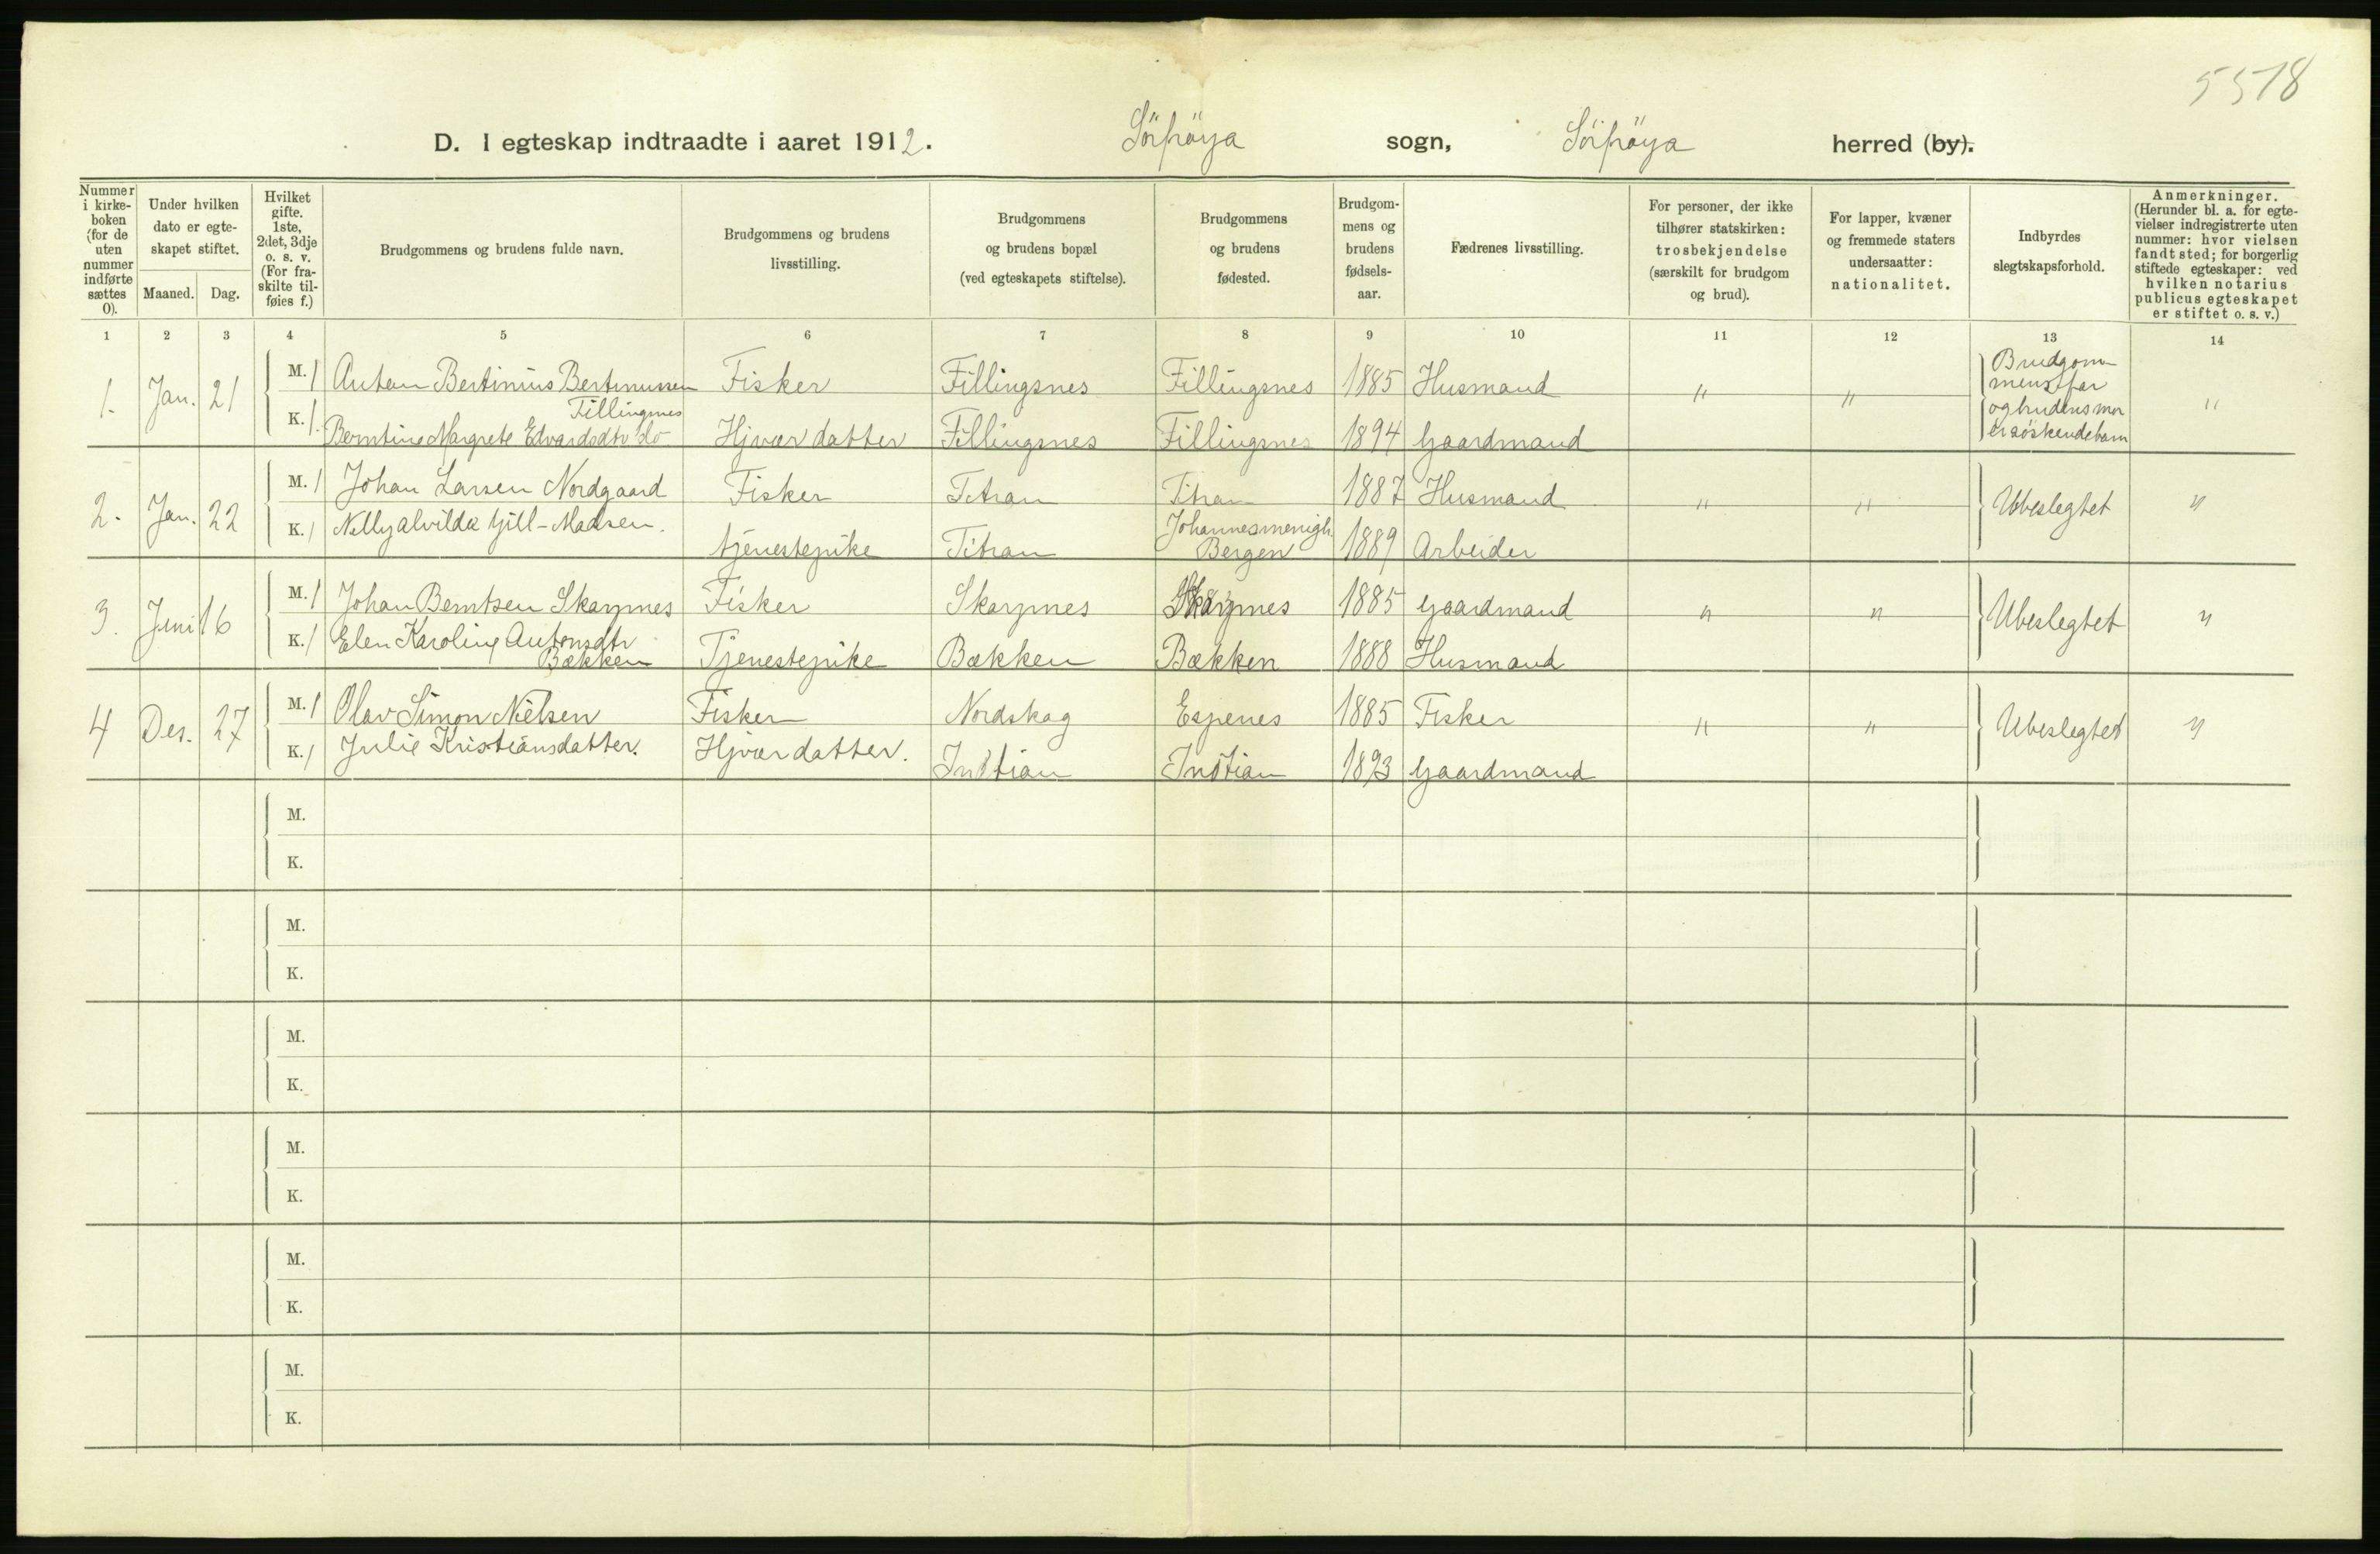 5578
D. I egteskap indtraadte i aaret 1912. Sörfröya sogn, Sörfröya herred (by).
Nummer i kirke-boken (for de uten nummer indførte sættes 0).
Under hvilken dato er egte-skapet stiftet.
Maaned. Dag.
Hvilket gifte. 1ste, 2det, 3dje o. s. v. (For fra-skilte til-føies f.)
Brudgommens og brudens fulde navn.
Brudgommens og brudens livsstilling.
Brudgommens og brudens bopæl (ved egteskapets stiftelse).
Brudgommens og brudens fødested.
Brudgom-mens og brudens fødsels-aar.
Fædrenes livsstilling.
For personer, der ikke tilhører statskirken: trosbekjendelse (særskilt for brudgom og brud).
For lapper, kvæner og fremmede staters undersaatter: nationalitet.
Indbyrdes slegtskapsforhold.
Anmerkninger. (Herunder bl. a. for egte-vielser indregistrerte uten nummer: hvor vielsen fandt sted; for borgerlig stiftede egteskaper: ved hvilken notarius publicus egteskapet er stiftet o. s. v.)
1 2 3 4 5 6 7 8 9 10 11 12 13 14
1. Jan. 21 M. 1 Anton Bertinius Bertinussen Fillingsnes Fisker Fillingsnes Fillingsnes 1885 Husmand " " Brudgom-mens far og brudens mor er søskendebarn "
K. 1. Berntine Margrete Edvardsdtr do Hjvær datter Fillingsnes Fillingsnes 1894 Gaardmand
2. Jan. 22 M. 1 Johan Larsen Nordgaard Fisker Titran Titran 1887 Husmand " " Ubeslegtet "
K. 1 Nelly Alvilde Gill-Madsen. tjenestepike Titran Johannesmenigh. Bergen 1889 Arbeider
3. Juni 16 M. 1 Johan Berntsen Skarpnes Fisker Skarpnes Skarpnes 1885 Gaardmand " " Ubeslegtet "
K. 1 Elen Karoline Antonsdtr Bækken Tjenestepike Bækken Bækken 1888 Husmand
4 Des. 27 M. 1 Olav Simon Nielsen Fisker Nordskag Espenes 1885 Fisker " " Ubeslegtet "
K. 1 Julie Kristiansdatter. Hjvær datter. Inntian Inntian 1893 Gaardmand
M.
K.
M.
K.
M.
K.
M.
K.
M.
K.
M.
K.